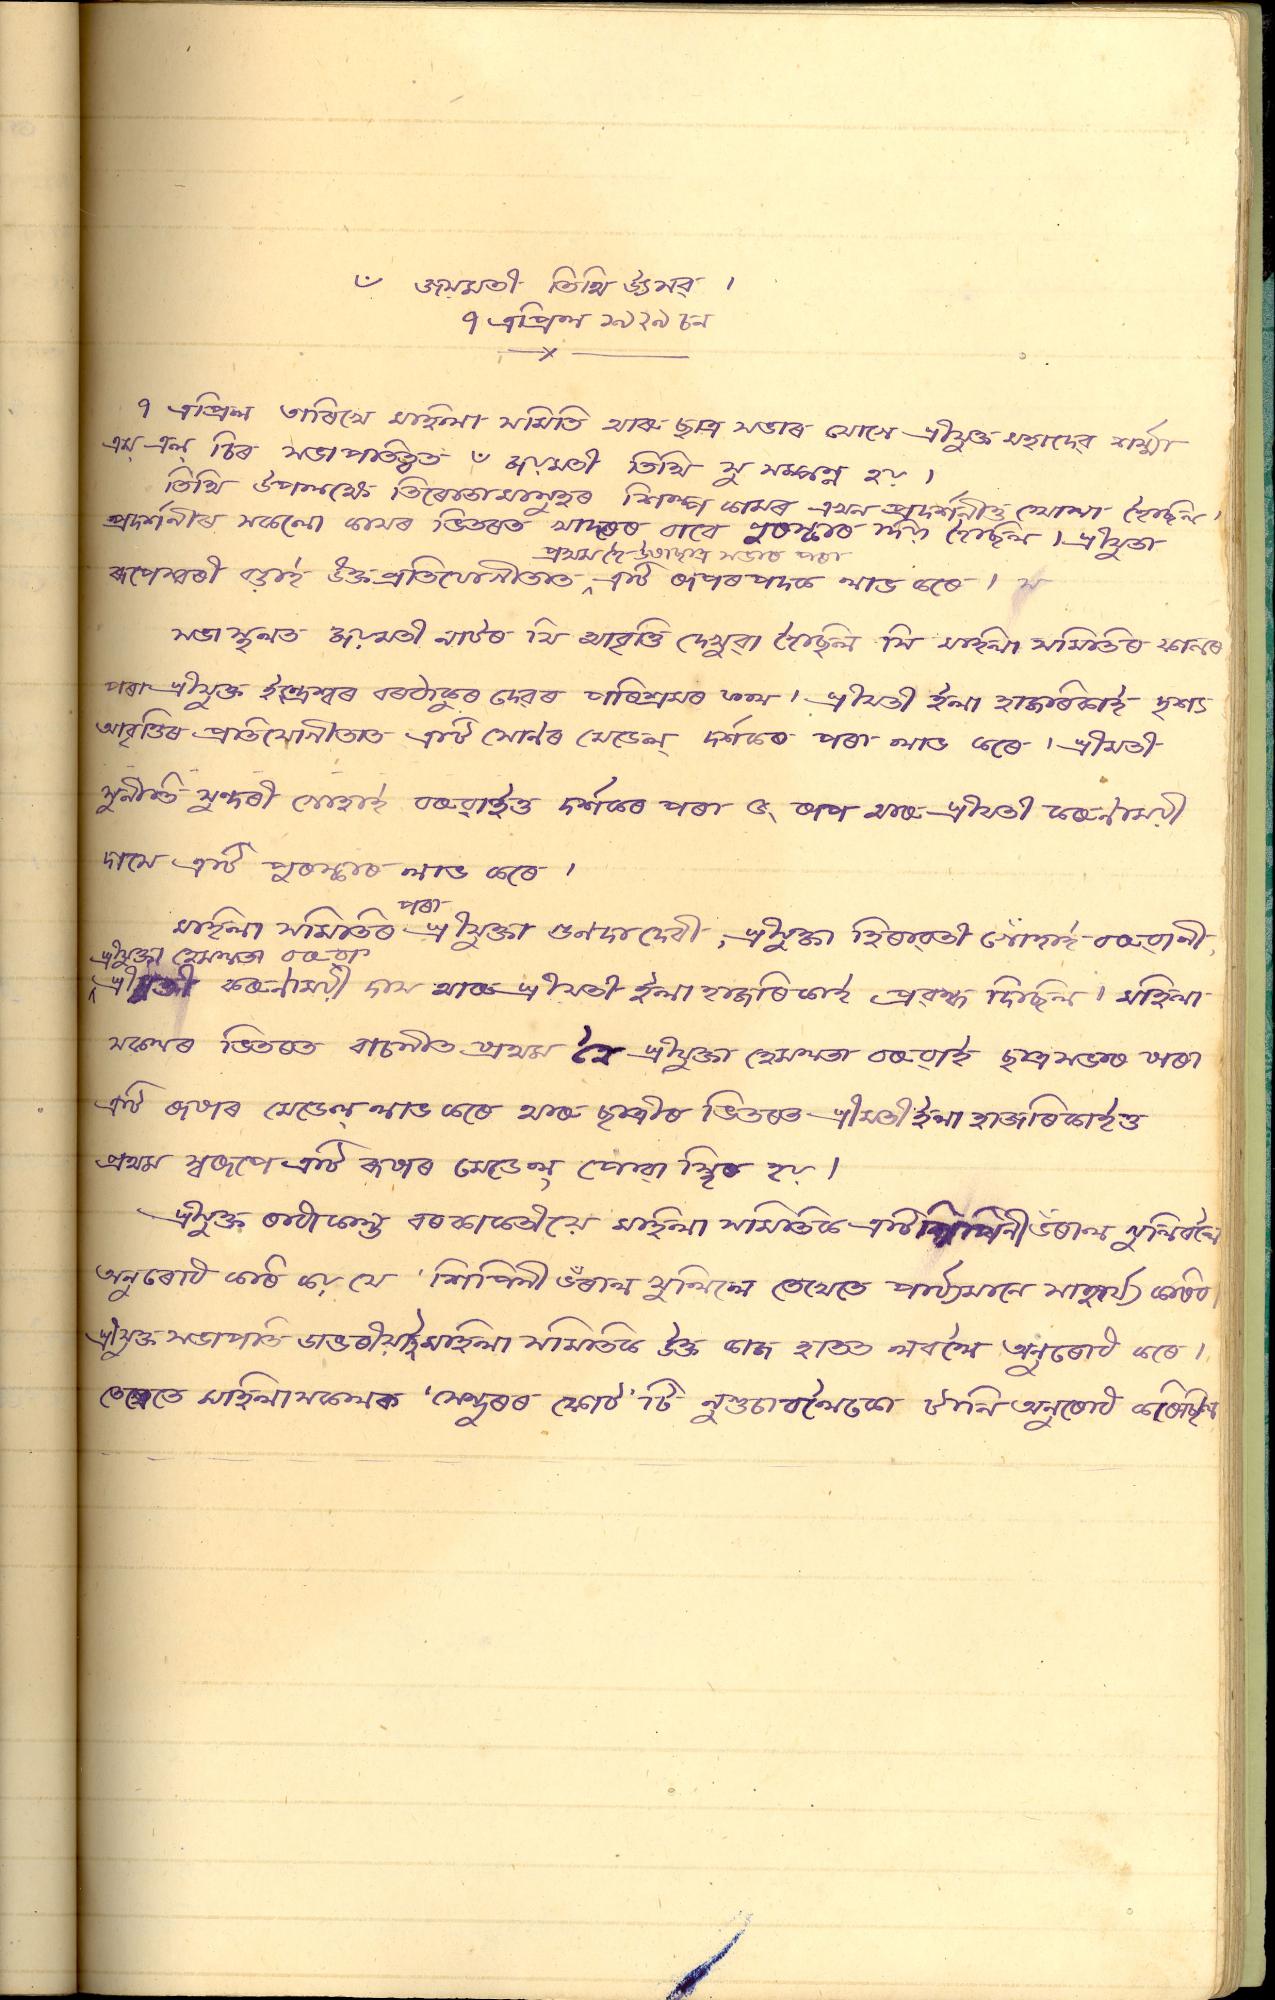 ঁ জয়মতী তিথি উৎসৱ ।
৭ এপ্ৰিল ১৯২৯ চন
৭ এপ্ৰিল তাৰিখে মহিলা সমিতি আৰু ছাত্ৰ সভাৰ যোগে শ্ৰীযুক্ত মহাদেৱ শৰ্ম্মা
এম্ এল্ চিৰ সভাপতিত্বত ঁ জয়মতী তিথি সুসম্পন্ন হয় ।
তিথি উপলক্ষে তিৰোতা মানুহৰ শিল্প কামৰ এখন প্ৰদৰ্শনীও খোলা হৈছিল ।
প্ৰদৰ্শনীৰ সকলো কামৰ ভিতৰত ভাল কামৰ বাবে পুৰস্কাৰ দিয়া হৈছিল । শ্ৰীযুতা
প্ৰথম হৈ ছাত্ৰ সভাৰ পৰা
ৰূপেশ্বৰী বড়াই উক্ত প্ৰতিযোগীতাত এটি ৰূপৰ পদক লাভ কৰে ।
সভাস্থলত জয়মতী নাটৰ যি আবৃত্তি দেখুৱা হৈছিল সি মহিলা সমিতিৰ ফালৰ
পৰা শ্ৰীযুক্ত ইন্দ্ৰেশ্বৰ বৰঠাকুৰ দেৱৰ পৰিশ্ৰমৰ ফল । শ্ৰীমতী ইলা হাজৰিকাই দৃশ্য
আবৃত্তিৰ প্ৰতিযোগীতাত এটি সোনৰ মেডেল্ দৰ্শকৰ পৰা লাভ কৰে । শ্ৰীমতী
সুনীতি সুন্দৰী গোহাই বৰুৱাইও দৰ্শকৰ পৰা ৫৲ ৰূপ আৰু শ্ৰীমতী কৰুণাময়ী
দাসে এটি পুৰস্কাৰ লাভ কৰে ।
পৰা
মহিলা সমিতিৰ শ্ৰীযুক্তা গুনদা দেবী, শ্ৰীযুক্তা হিৰাৱতী গোঁহাই বৰুৱানী,
শ্ৰীযুক্তা হেমলতা বৰুৱা
শ্ৰীমতী কৰুণাময়ী দাস আৰু শ্ৰীমতী ইলা হাজৰিকাই প্ৰৱন্ধ দিছিল । মহিলা
সকলৰ ভিতৰত ৰাচনীত প্ৰথম হৈ শ্ৰীযুক্তা হেমলতা বৰুৱাই ছাত্ৰ সভাৰ পৰা
এটি ৰূপৰ মেডেল্ লাভ কৰে আৰু ছাত্ৰীৰ ভিতৰত শ্ৰীমতী ইলা হাজৰিকাইও
প্ৰথম স্বৰূপে এটি ৰূপৰ মেডেল্ পোৱা স্থিৰ হয় ।
শ্ৰীযুক্ত ৰাধাকান্ত বৰকাকতীয়ে মহিলা সমিতিকে এটি শিপিনী ভঁৰাল খুলিবলৈ
অনুৰোধ কৰি কয় যে 'শিপিনী ভঁৰাল খুলিলে তেখেতে পাৰ্য্যমানে সাহাৰ্য্য কৰিব ।
শ্ৰীযুক্ত সভাপতি ডাঙৰীয়াই মহিলা সমিতিকে উক্ত কাজ হাতত লবলৈ অনুৰোধ কৰে ।
তেখেতে মহিলা সকলক 'সেন্দুৰৰ ফোঁট' টি নুগুচাবলৈকো টানি অনুৰোধ কৰিছিল